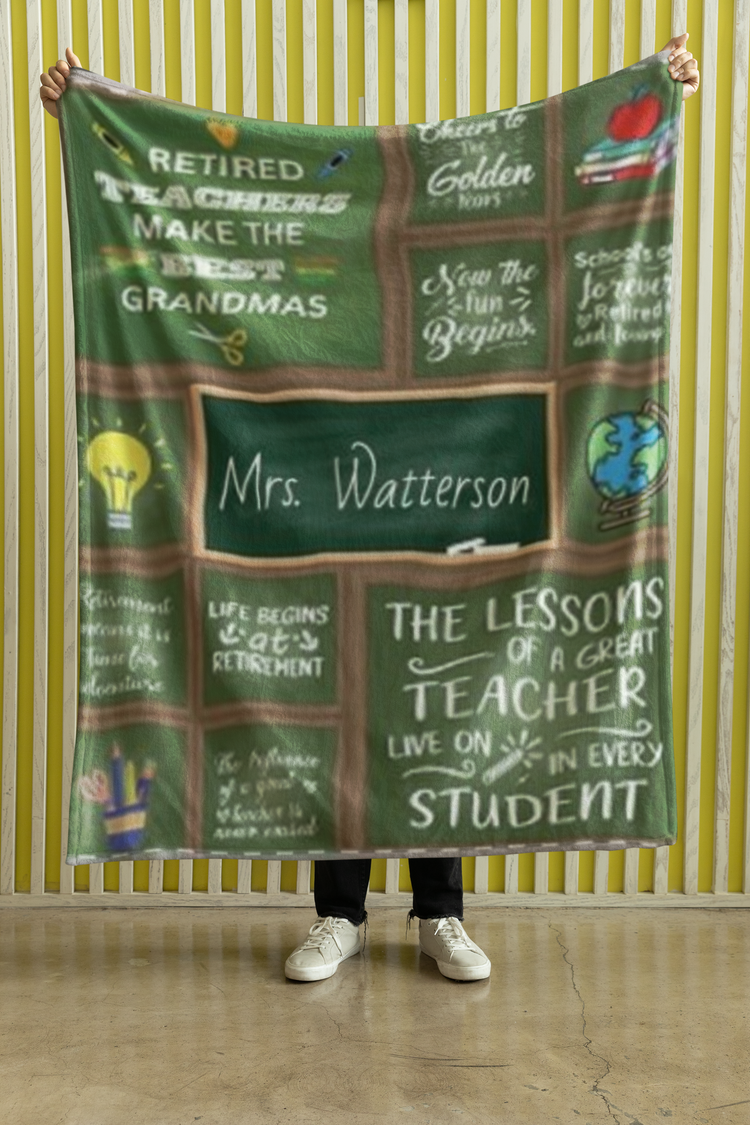 RETIRED
TEACHERS
MAKE THE
BEST
GRANDMAS
Cheers to
The
Golden
Years
Now the
fun
Begins
School's
forever
Retired
and
Mrs. Watterson
Retirement
means it is
Time for
adventure
LIFE BEGINS
at
RETIREMENT
The Influence
of a good
teacher is
never ended
THE LESSONS
OF A GREAT
TEACHER
LIVE ON
IN EVERY
STUDENT